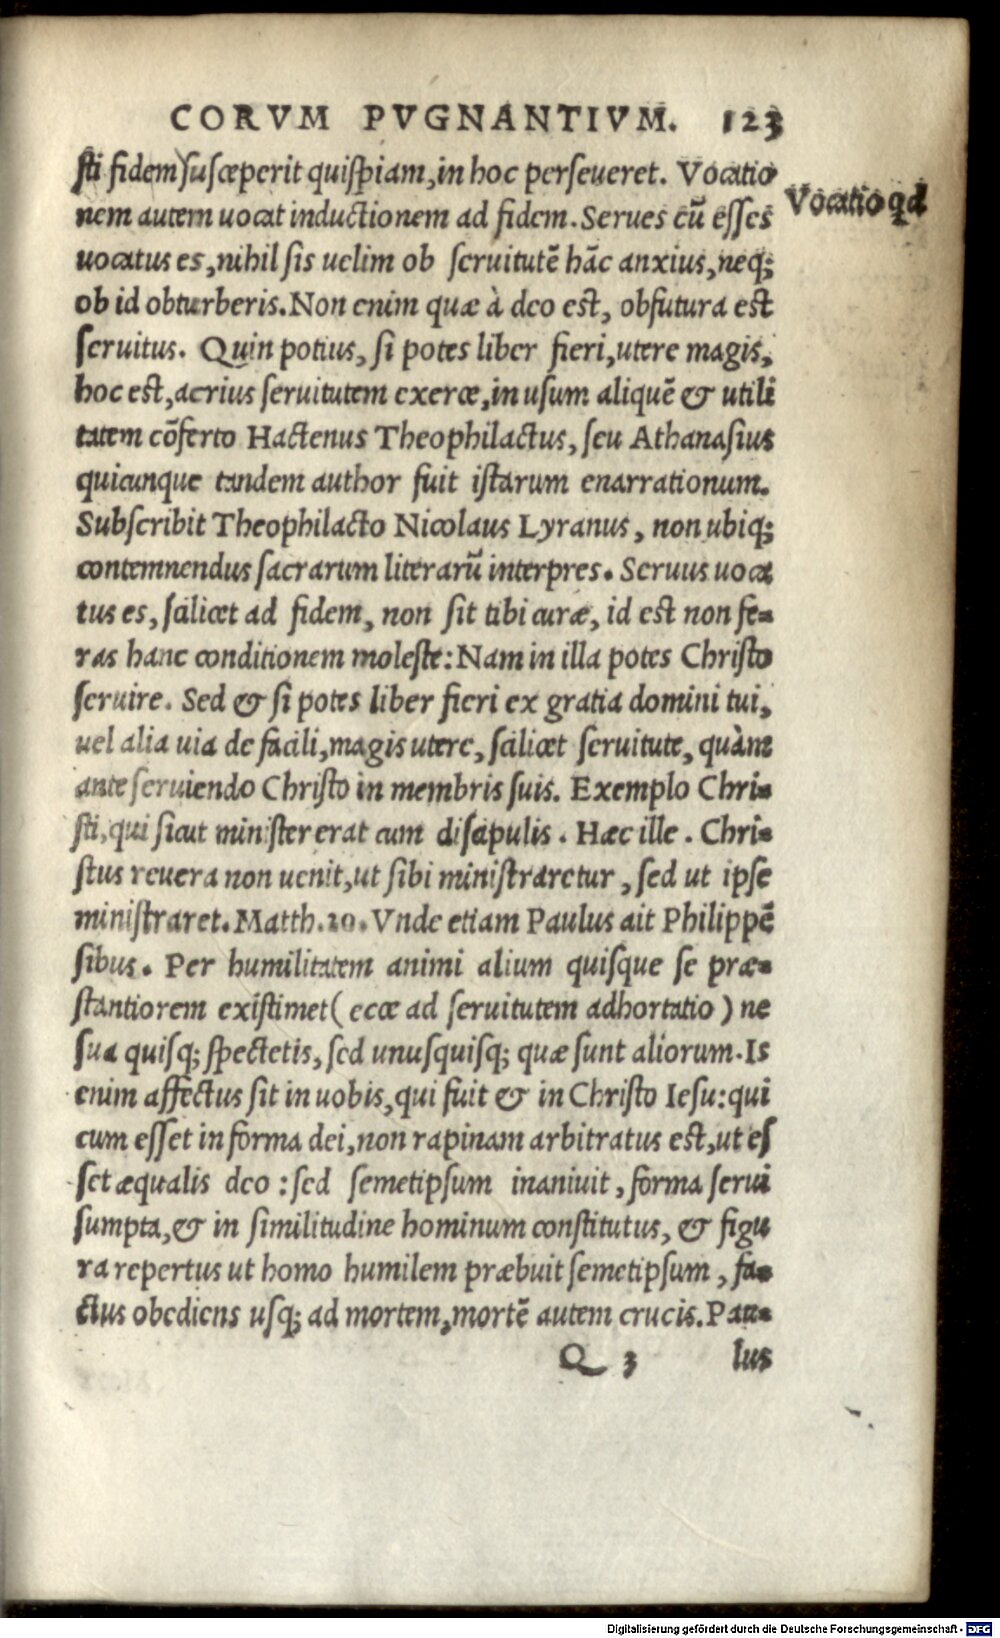 CORVM PVGNANTIVM. 123
sti fidem susceperit quispiam, in hoc perseueret. Vocatio
Vocatio qd
nem autem uocat inductionem ad fidem. Serues cū esses
uocatus es, nihil sis uelim ob seruitutē hāc anxius, neq;
ob id obturberis. Non enim quæ à deo est, obfutura est
seruitus. Quin potius, si potes liber fieri, utere magis,
hoc est, acrius seruitutem exerce, in usum aliquē & utili
tatem cōferto Hactenus Theophilactus, seu Athanasius
quicunque tandem author fuit istarum enarrationum.
Subscribit Theophilacto Nicolaus Lyranus, non ubiq;
contemnendus sacrarum literarū interpres. Seruus uoca
tus es, scilicet ad fidem, non sit tibi curæ, id est non fe-
ras hanc conditionem moleste: Nam in illa potes Christo
seruire. Sed & si potes liber fieri ex gratia domini tui,
uel alia uia de facili, magis utere, scilicet seruitute, quàm
ante seruiendo Christo in membris suis. Exemplo Chri-
sti, qui sicut minister erat cum discipulis. Hæc ille. Chri-
stus reuera non uenit, ut sibi ministraretur, sed ut ipse
ministraret. Matth. 20. Vnde etiam Paulus ait Philippē
sibus. Per humilitatem animi alium quisque se præ-
stantiorem existimet (ecce ad seruitutem adhortatio) ne
sua quisq; spectetis, sed unusquisq; quæ sunt aliorum. Is
enim affectus sit in uobis, qui fuit & in Christo Iesu: qui
cum esset in forma dei, non rapinam arbitratus est, ut es
set æqualis deo: sed semetipsum inaniuit, forma serui
sumpta, & in similitudine hominum constitutus, & figu
ra repertus ut homo humilem præbuit semetipsum, fa-
ctus obediens usq; ad mortem, mortē autem crucis. Pau-
Q 3 lus
Digitalisierung gefördert durch die Deutsche Forschungsgemeinschaft - DFG